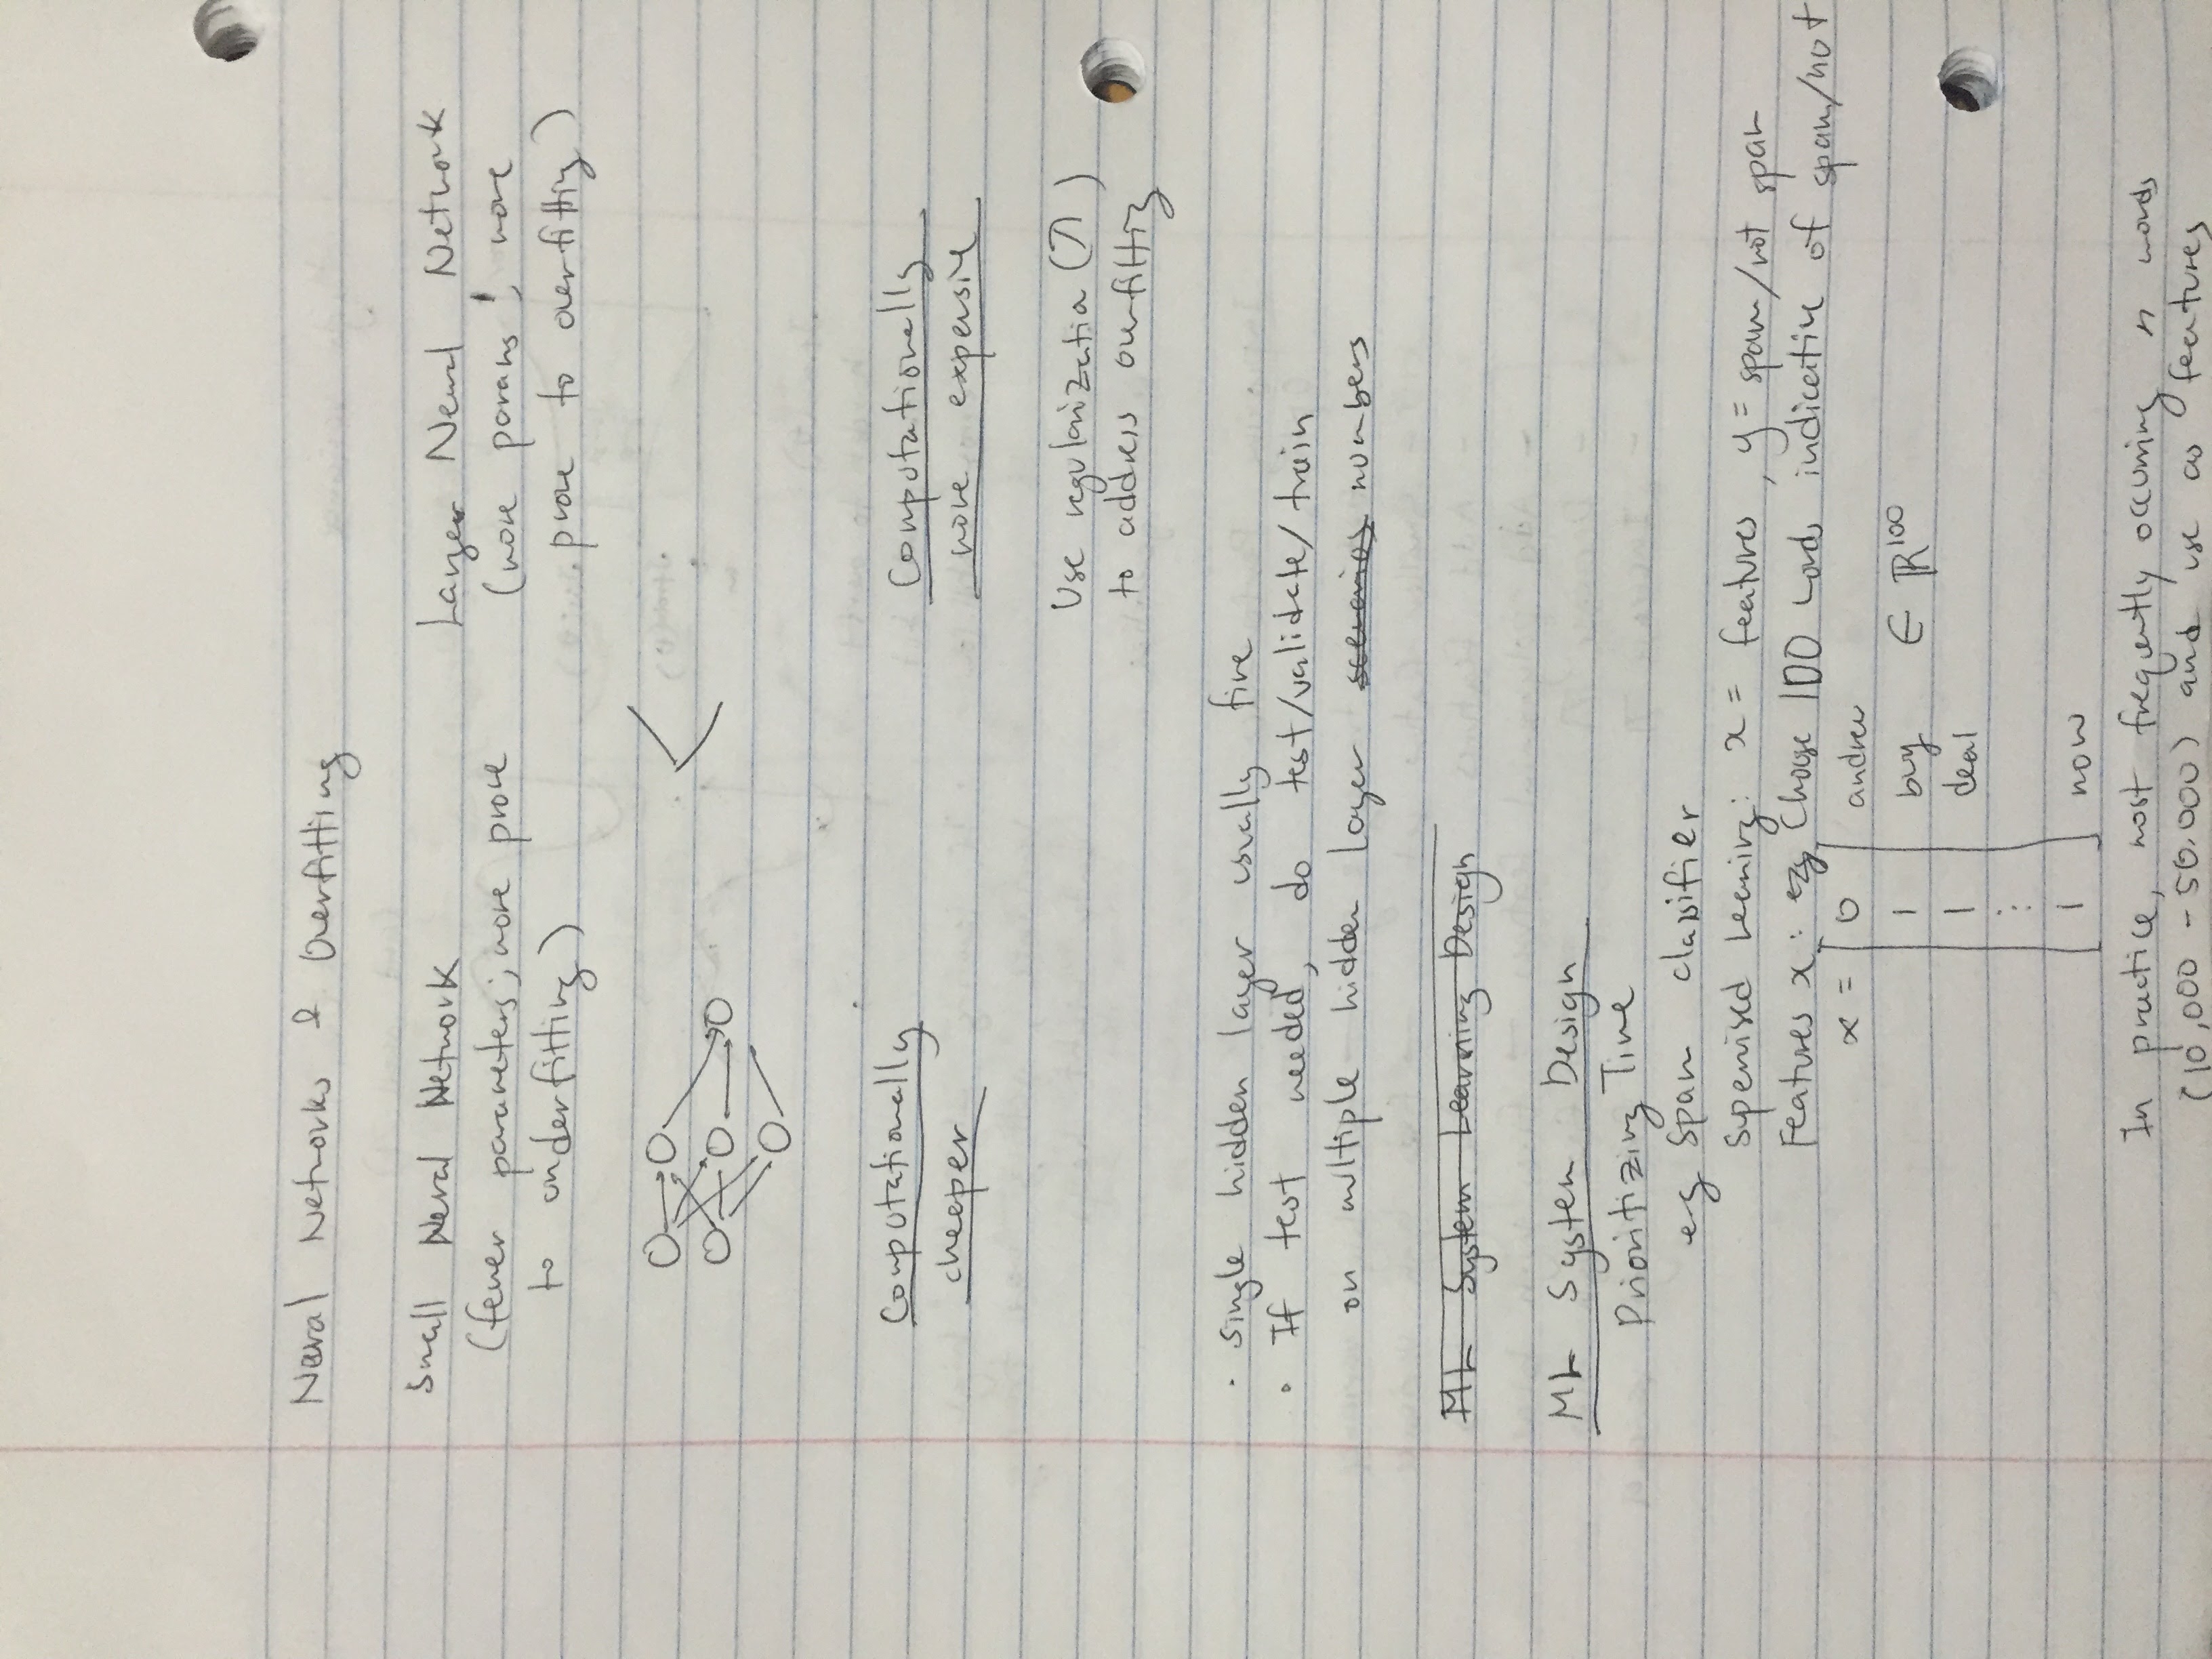 Neural Networks & Overfitting
Small Neural Network
(fewer parameters; more prone
to underfitting)
Larger Neural Network
(more params; more
prone to overfitting)
<
Computationally
cheeper
Computationally
more expensive
Use regularization (λ)
to address overfitting
· Single hidden layer usually fine
· If test needed, do test/validate/train
on multiple hidden layer scenarios numbers
ML System Learning Design
ML System Design
Prioritizing Time
eg Spam classifier
Supervised Learning: x = features, y = spam/not spam
Features x: eg Choose 100 words indicative of spam/not
x = [ 0 andrew
1 buy ∈ ℝ¹⁰⁰
1 deal
⋮
1 ] now
In practice, most frequently occurring n words
(10,000 - 50,000) and use as features